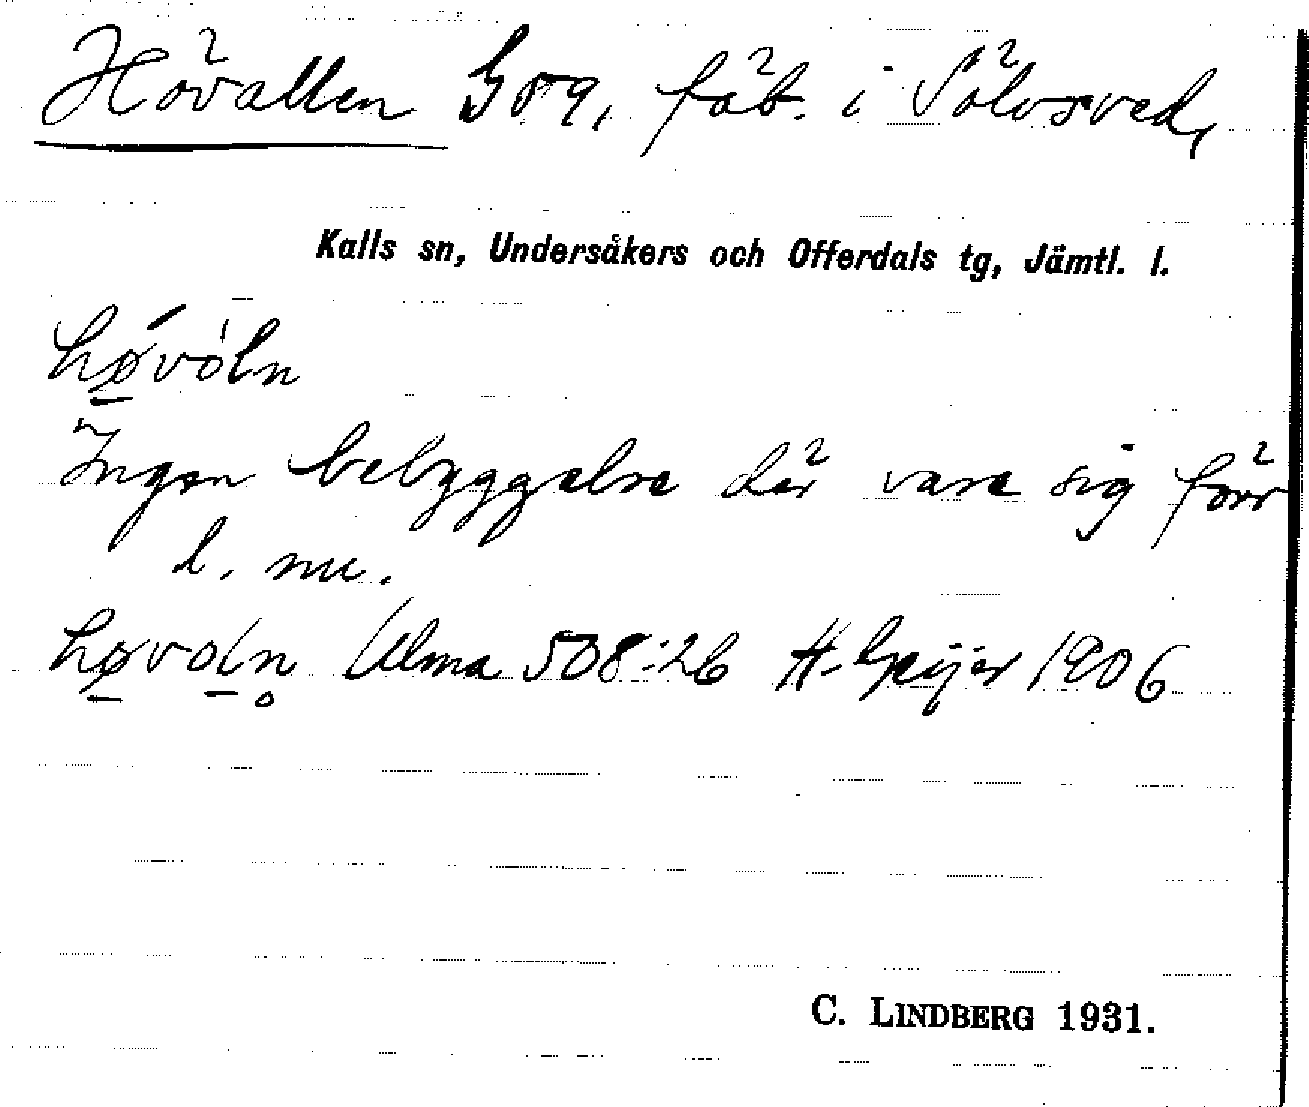 Hövallen G59, fäb. i Sölvsved,
Kalls sn, Undersåkers och Offerdals tg, Jämtl. l.
hø̱vóln
Ingen bebyggelse där vare sig förr
l. nu.
hø̱vo̱ln̥ Ulma 508:26 H. Geijer 1906
C. LINDBERG 1931.